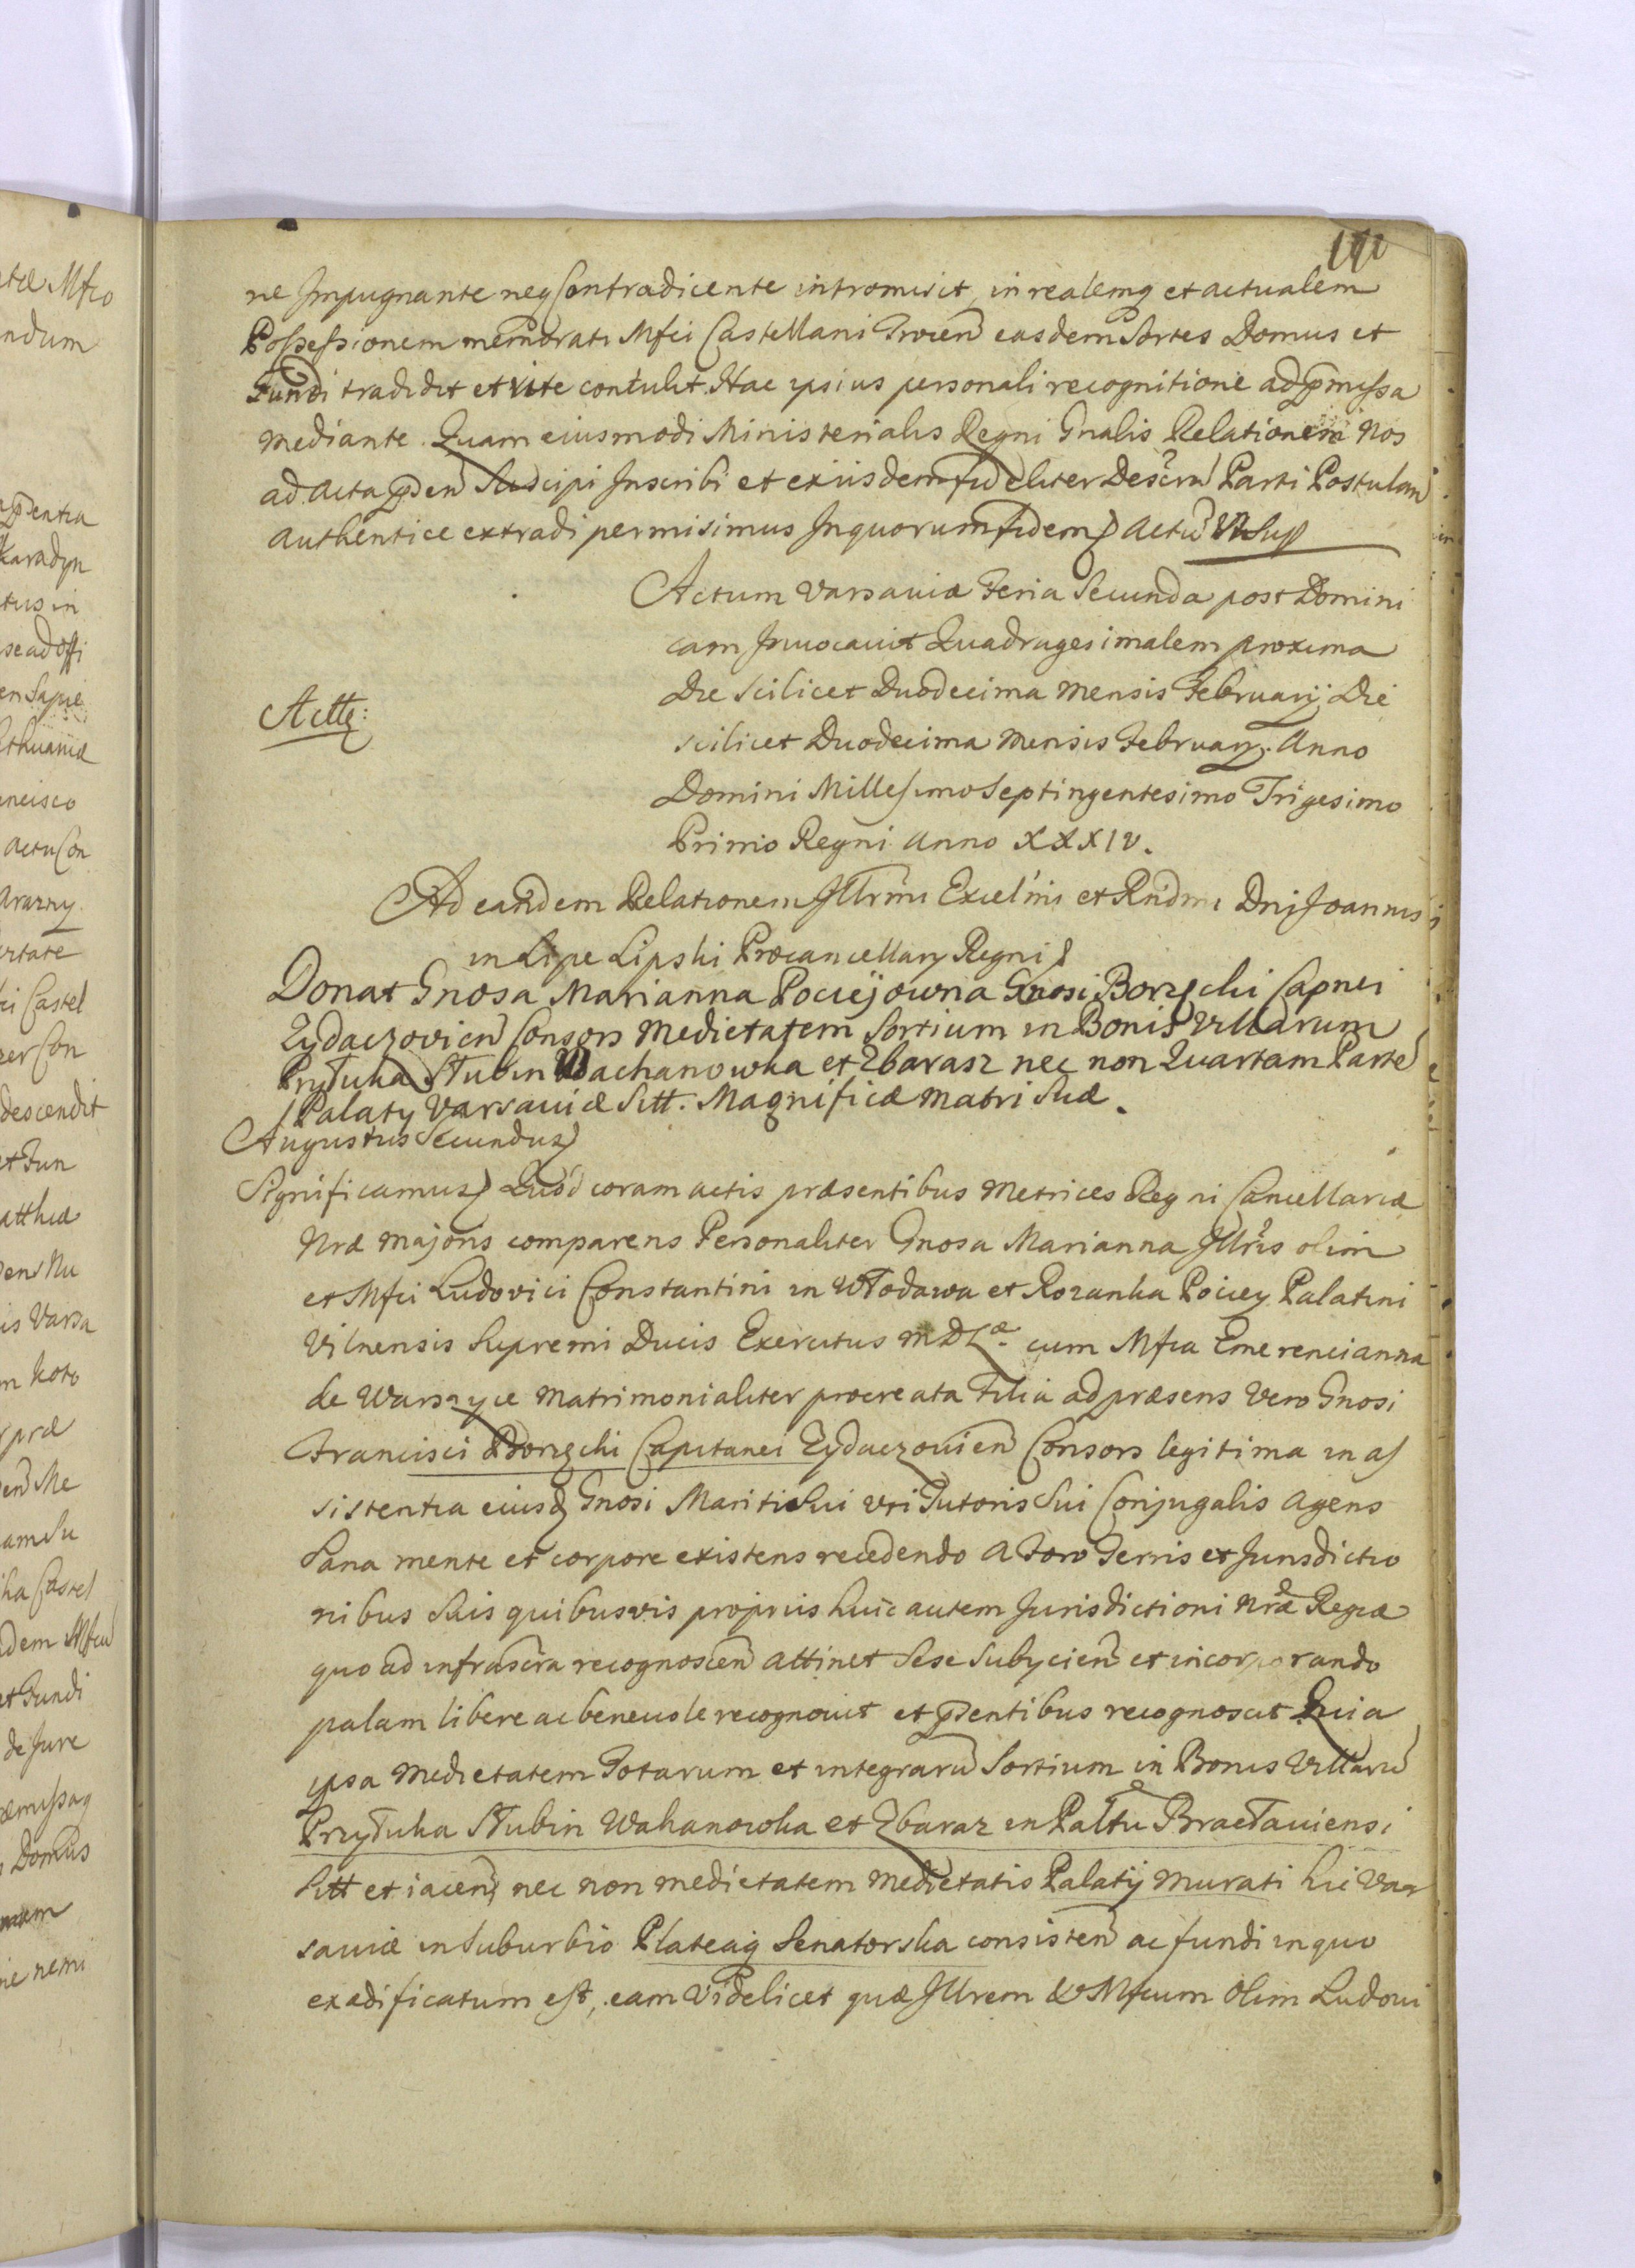 ne Impugnante neq Contradicente intromisit, in realemq et actualem
Possessionem memorati Mfci Castellani Trocen easdem Sortes Domus et
Fundi tradidit et rite contulit. Hac ipsius personali recognitione ad pmissa
mediante. Quam eiusmodi Ministerialis Regni Gnalis Relationem Nos
ad Acta pden Suscipi Inscribi et exiisdem fideliter Descra Parti Postulan
authentice extradi permisimus In quorum fidem Actu Ut Sup
Actum Varsaviæ Feria Secunda post Domini
cam Invocavit Quadragesimalem proxima
Die scilicet Duodecima mensis Februarij Die
Actt:
scilicet Duodecima mensis Februarij. Anno
Domini Millesimo Septingentesimo Trigesimo
Primo Regni anno XXXIV.
Ad eandem Relationem Illrmi Excelmi et Rndmi Dnj Joannis
in Lipe Lipski Procancellarij Regni
Donat Gnosa Marianna Pociejowna Gnosi Borzęcki Capnei
Zydaczovien Consors medietatem Sortium in Bonis Villarum
Przyłuka Słubin Wachanowka et Zbarasz nec non Quartam Parte
Palatij Varsaviæ Sitt. Magnificæ matri Suæ.
Augustus Secundus
Significamus Quod coram actis præsentibus Metrices Regni Cancellariæ
Nræ majoris comparens Personaliter Gnosa Marianna Illris olim
et Mfci Ludovici Constantini in Włodawa et Rozanka Pociey Palatini
Vilnensis Supremi Ducis Exercitus M D Læ cum Mfca Emerencianna
de Warszyce matrimonialiter procreata Filia ad præsens Vero Gnosi
Francisci Borzęcki Capitanei Zydaczovien Consors legitima in as
sistentia eiusd Gnosi Mariti Sui uti Tutoris Sui Conjugalis agens
Sana mente et corpore existens recedendo a Foro Terris et Jurisdictio
nibus Suis quibusvis propriis huic autem Jurisdictioni Nræ Regiæ
quo ad infrascra recognoscen attinet Sese Subycien et incorporando
palam libere ac benevole recognovit et pdentibus recognoscit Quia
ipsa medietatem Totarum et integraru Sortium in Bonis Villaru
Przyłuka Słubin Wahanowka et Zbaraz in Palttu Bracłaviensi
Sitt et iacen, nec non medietatem medietatis Palatij murati hic Var
saviæ in Suburbio Plateaq Senatorska consisten ac fundi in quo
exædificatum est, eam Videlicet quæ Illrem & Mfcum Olim Ludovi